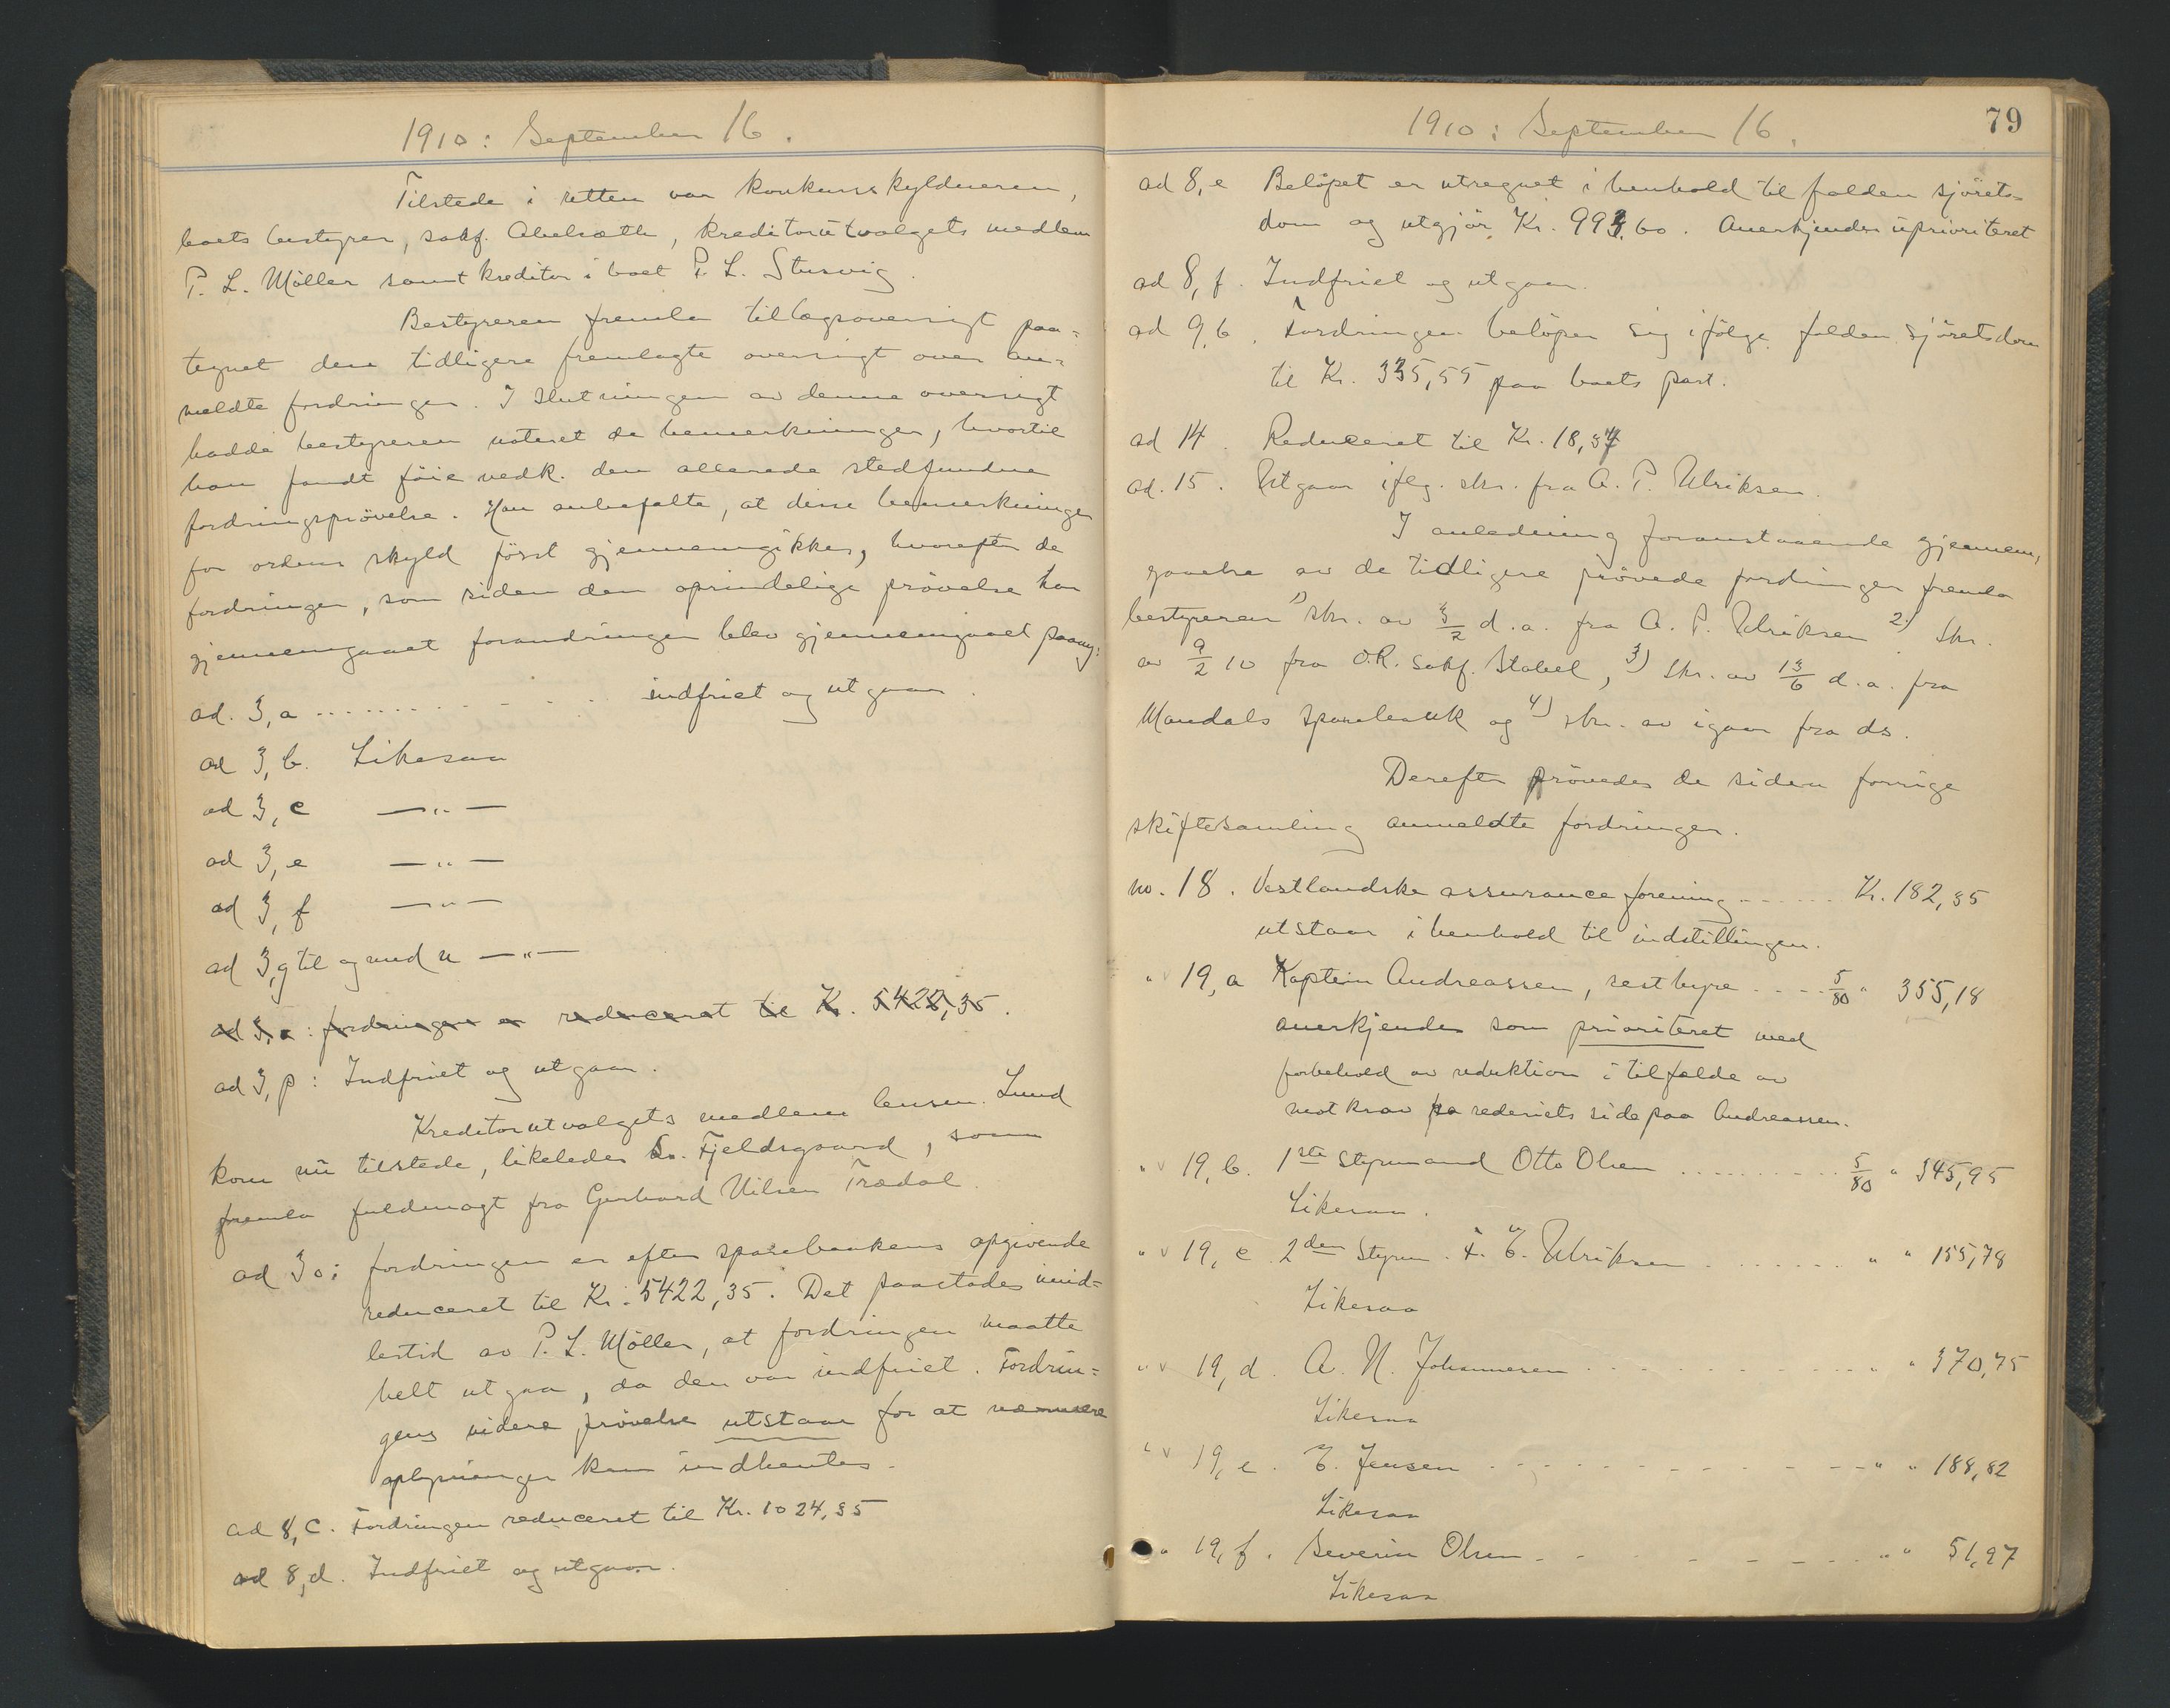 1910: September 16.
Tilstede i retten var konkursskyldneren,
boets bestyrer, sakf. Abelsæth, kreditorutvalgets medlem
P. L. Möller samt kreditor i boet P. L. Stusvig.
Bestyreren fremla tillægsoversigt paa=
tegnet den tidligere fremlagte oversigt over an=
meldte fordringer. I slutningen av denne oversigt
hadde bestyreren noteret de bemerkninger, hvortil
han fandt föie vedk. den allerede stedfundne
fordringsprövelse. Han anbefalte, at disse bemerkninger
for ordens skyld först gjennemgikkes, hvorefter de
fordringer, som siden den oprindelige prövelse har
gjennemgaaet forandringer blev gjennemgaaet paany:
ad. 3, a ............ indfriet og utgaar.
ad 3, b. Likesaa
ad 3, c —"—
ad 3, e —"—
ad 3, f —"—
ad 3, g til og med n —"—
ad 3, o: fordringen er reduceret til Kr. 5422,35.
ad 3, p: Indfriet og utgaar.
Kreditorutvalgets medlem lensm. Lund
kom nu tilstede, likeledes So. Fjeldsgaard, som
fremla fuldmagt fra Gerhard Nilsen Trædal.
ad 3o: fordringen er efter sparebankens opgivende
reduceret til Kr. 5422,35. Det paastodes imid=
lertid av P. L. Möller, at fordringen maatte
helt utgaa, da den var indfriet. Fordrin=
gens videre prövelse utstaar for at nærmere
oplysninger kan indhentes.
ad 8, c. Fordringen reduceret til Kr. 1024,35
ad 8, d. Indfriet og utgaar.
1910: September 16.
79
ad 8, e Belöpet er utregnet i henhold til falden sjörets=
dom og utgjör Kr. 993,60. Anerkjendes uprioriteret
ad 8, f. Indfriet og utgaar.
ad 9, b. Fordringen belöper sig ifölge falden sjöretsdom
til Kr. 335,55 paa boets part.
ad 14. Reduceret til Kr. 18,37
ad. 15. Utgaar iflg. skr. fra A. P. Ulriksen.
I anledning foranstaaende gjennem,
gaaelse av de tidligere prövede fordringer fremla
bestyreren 1) skr. av 3/2 d.a. fra A. P. Ulriksen 2) skr.
av 9/2 10 fra O.R. sakf. Stabel, 3) skr. av 13/6 d.a. fra
Mandals sparebank og 4) skr. av igaar fra ds.
Derefter prövedes de siden forrige
skiftesamling anmeldte fordringer.
no. 18. Vestlandske assuranceforening ...... Kr. 182,35
utstaar i henhold til indstillingen.
" 19, a Kaptein Andreassen, resthyre .... 5/80 " 355,18
anerkjendes som prioriteret med
forbehold av reduktion i tilfælde av
motkrav fra rederiets side paa Andreassen.
" 19, b. 1ste Styrmand Otto Olsen ......... 5/80 " 345,95
Likesaa.
" 19, c 2den Styrm. F. E. Ulriksen ....... " " 155,78
Likesaa
" 19, d. A. N. Johannesen ........... " " 370,75
Likesaa
" 19, e. E. Jensen - - - - - - - - - - " " 188,82
Likesaa
" 19, f. Severin Olsen - - - - - - - " " 51,97
Likesaa